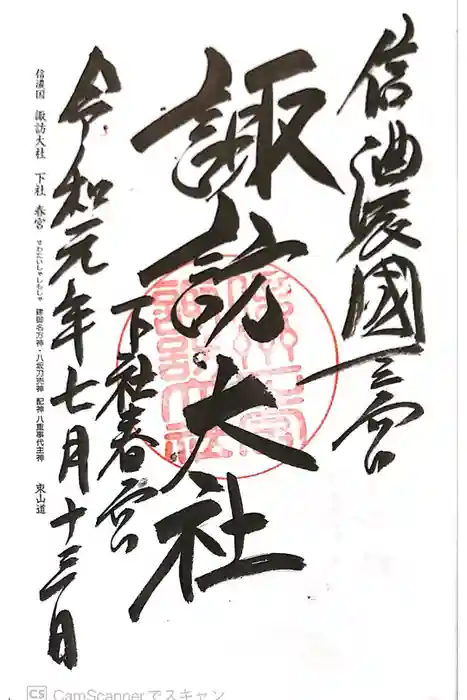 信濃國一宮
諏訪大社
下社春宮
令和元年七月十三日
信濃国 諏訪大社 下社 春宮 すわたいしゃしもしゃ 建御名方神・八坂刀売神 配神 八重事代主神 東山道
CS CamScannerでスキャン